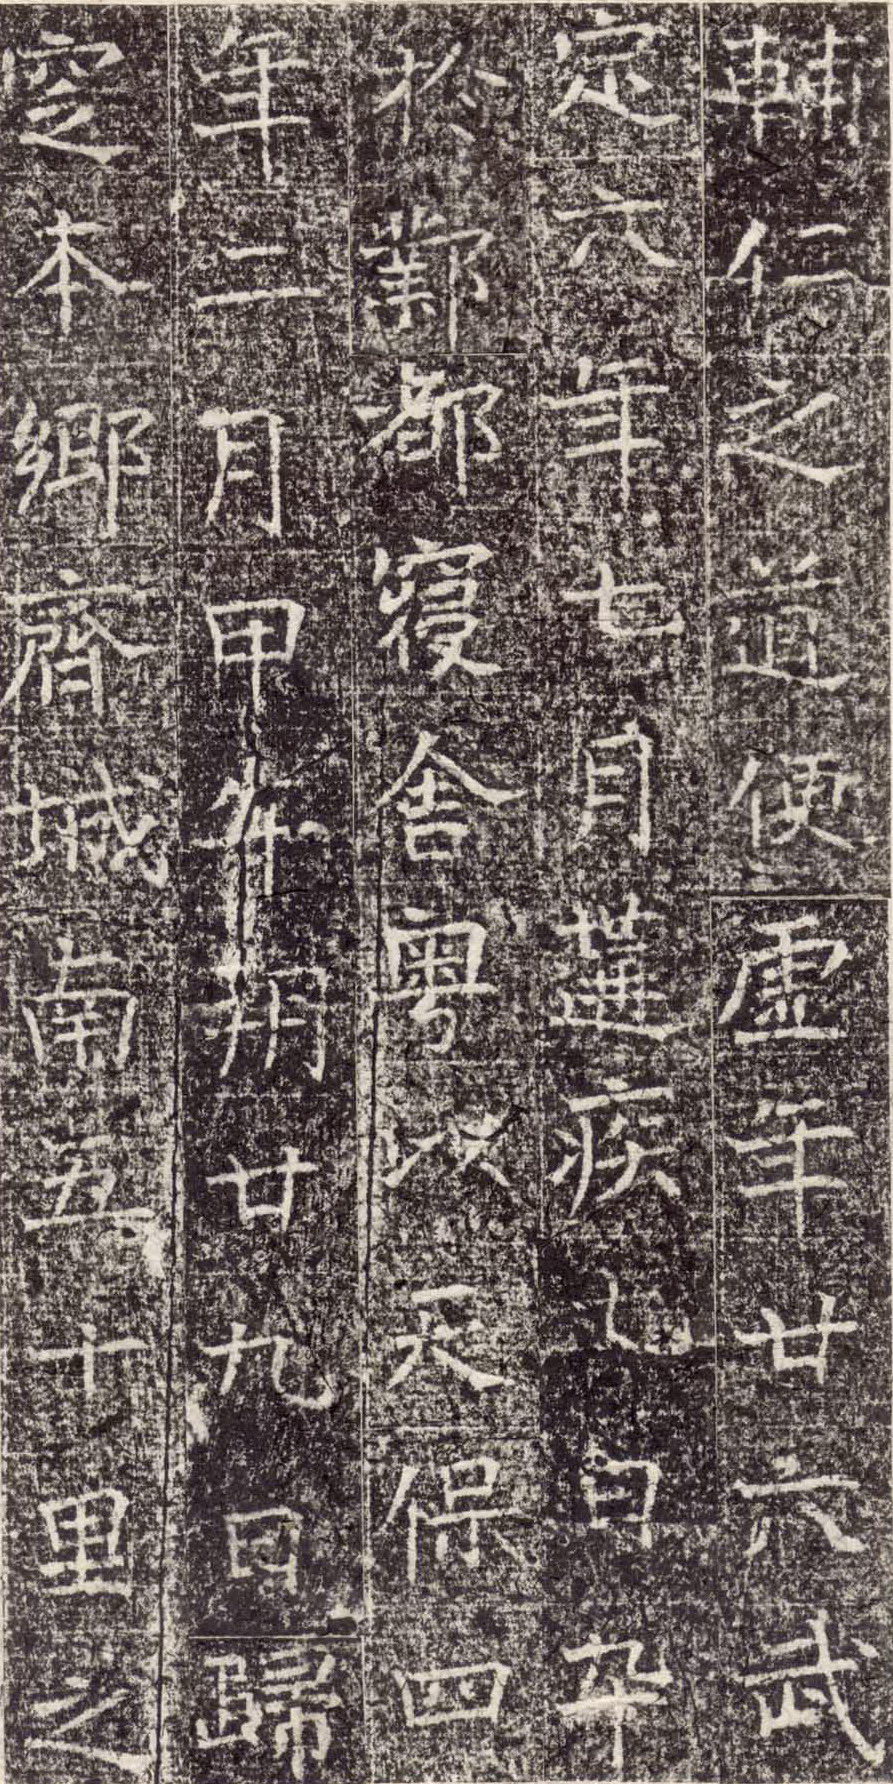 輔仁之道便虛年廿六武
定六年七月遘疾七日卒
於鄴都寢舍粵以天保四
年二月甲午朔廿九日歸
窆本鄉齊城南五十里之